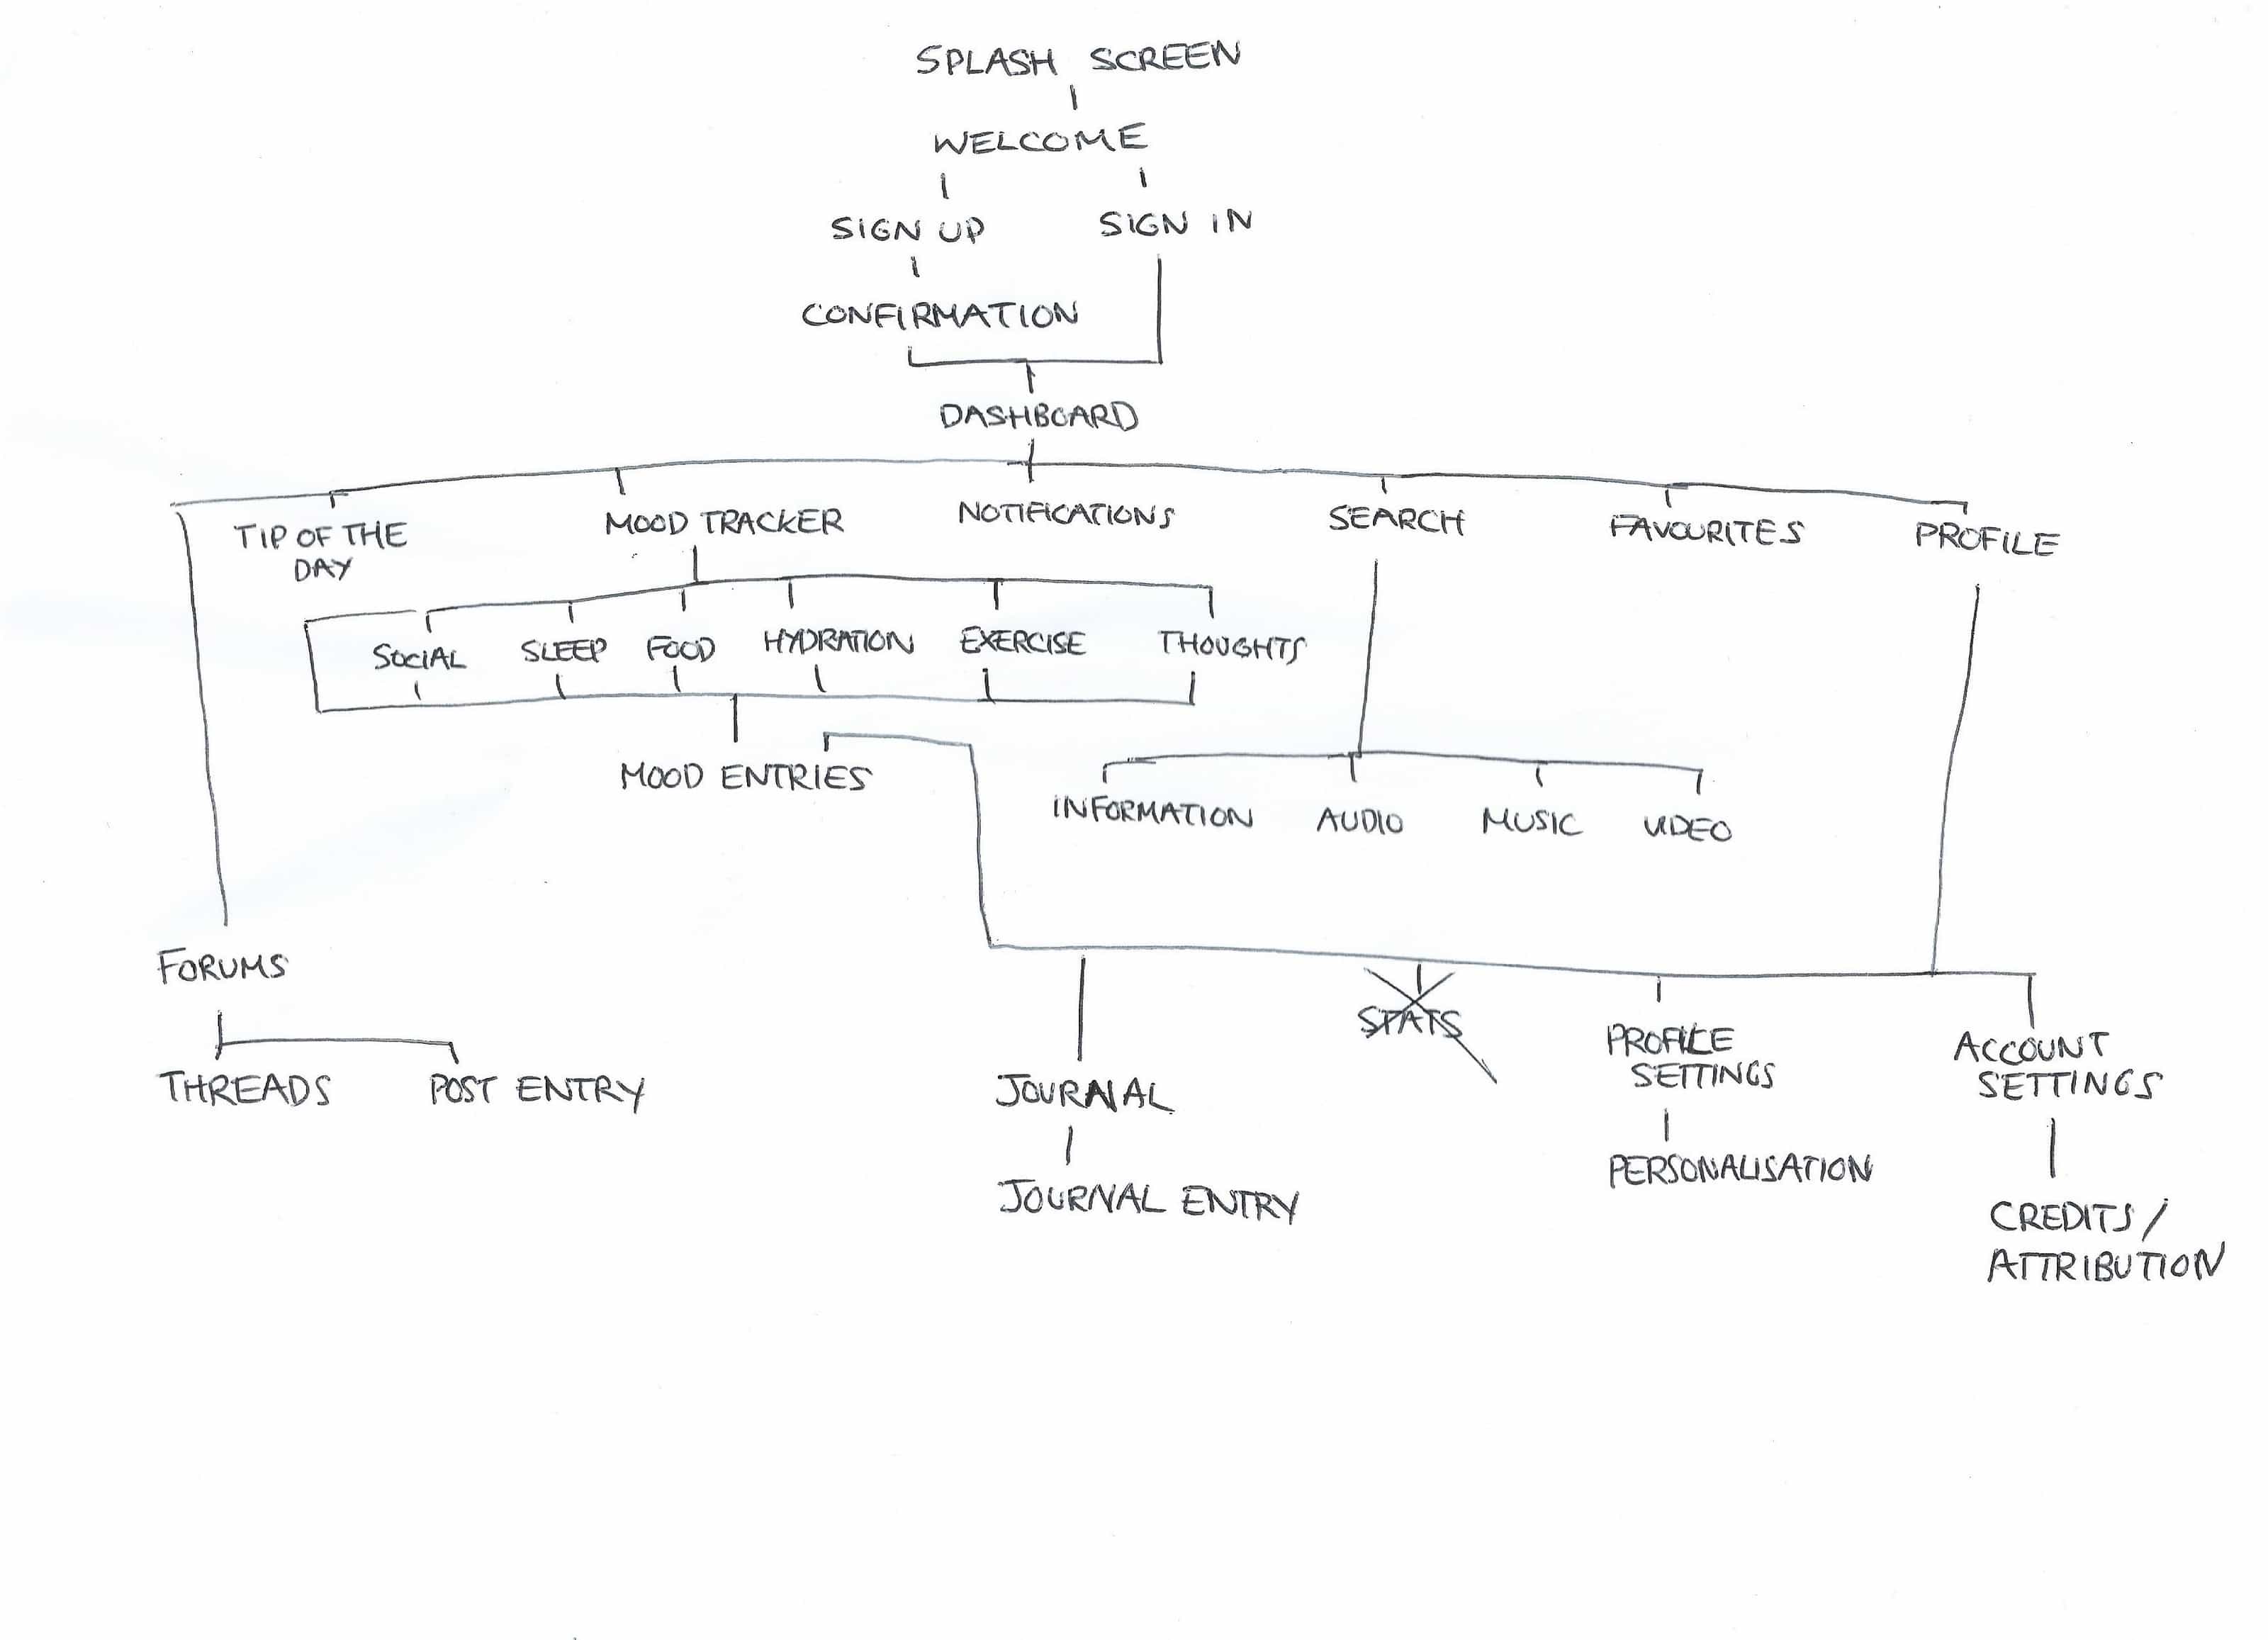 SPLASH SCREEN
WELCOME
SIGN UP
SIGN IN
CONFIRMATION
DASHBOARD
TIP OF THE
DAY
MOOD TRACKER
NOTIFICATIONS
SEARCH
FAVOURITES
PROFILE
SOCIAL
SLEEP
FOOD
HYDRATION
EXERCISE
THOUGHTS
MOOD ENTRIES
INFORMATION
AUDIO
MUSIC
VIDEO
FORUMS
THREADS
POST ENTRY
JOURNAL
JOURNAL ENTRY
STATS
PROFILE
SETTINGS
PERSONALISATION
ACCOUNT
SETTINGS
CREDITS/
ATTRIBUTION